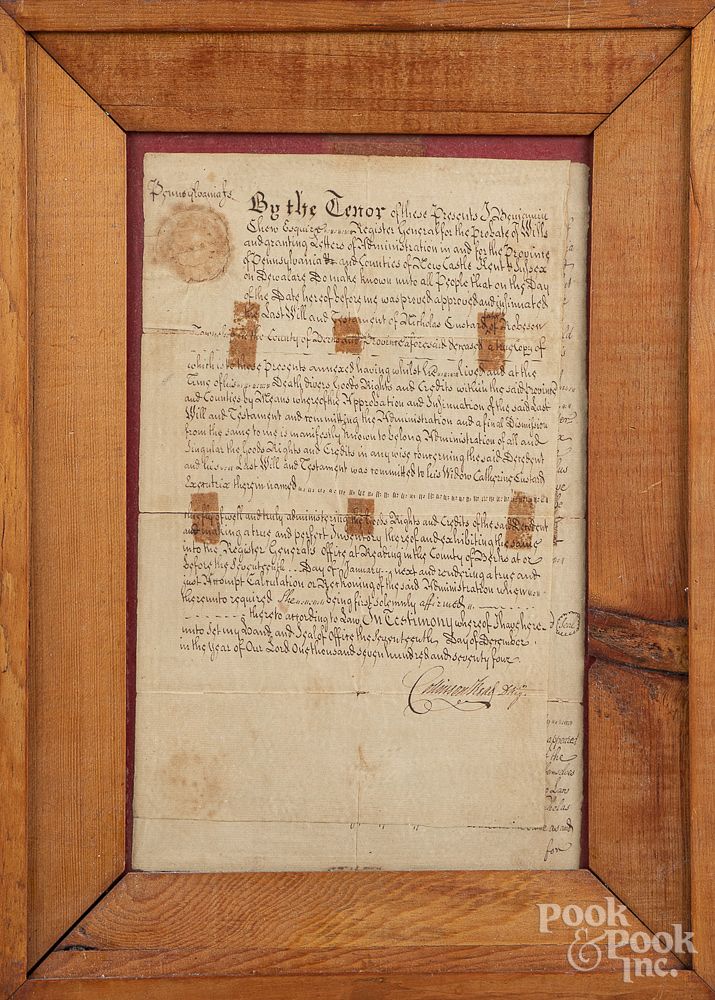 Pennsylvania ss
By the Tenor of these Presents I Benjamin
Chew Esquire Register General for the Probate of Wills
and granting Letters of Administration in and for the Province
of Pennsylvania and Counties of New Castle Kent & Sussex
on Delaware Do make known unto all People that on the Day
of the Date hereof before me was proved approved and insinuated
the Last Will and Testament of Nicholas Custard of Robeson
Township in the County of Berks and Province aforesaid deceased a true Copy of
which is to these Presents annexed having whilst he lived and at the
Time of his Death divers Goods Rights and Credits within the said Province
and Counties by Means whereof the Approbation and Insinuation of the said Last
Will and Testament and committing the Administration and a final Dismission
from the same to me is manifestly known to belong Administration of all and
Singular the Goods Rights and Credits in any wise concerning the said Decedent
and his Last Will and Testament was committed to his Widow Catherine Custard
Executrix therein named
chiefly of well and truly administering the Goods Rights and Credits of the said Decedent
and making a true and perfect Inventory thereof and exhibiting the same
into the Register Generals office at Reading in the County of Berks at or
before the Seventeenth Day of January next and rendering a true and
just Accompt Calculation or Reckoning of the said Administration when
thereunto required She being first solemnly affirmed
thereto according to Law, In Testimony whereof I have here-
unto set my Hand and Seal of Office the Seventeenth Day of December
in the Year of Our Lord One thousand seven hundred and seventy four
Collinson Read D Reg.
Seal
appointed
the
themselves
Law
Nicholas
as and
for
Pook
& Pook
Inc.